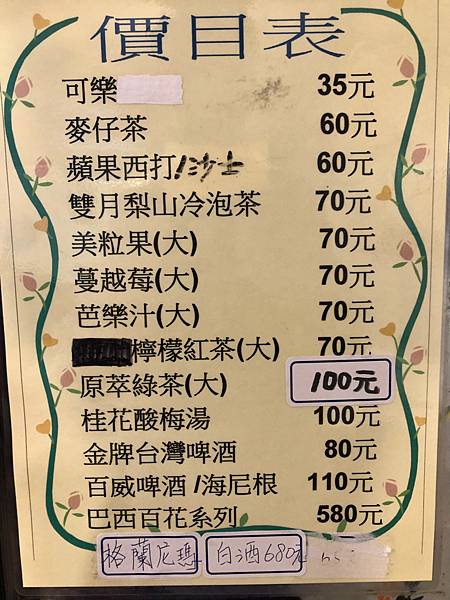 價目表
可樂 35元
麥仔茶 60元
蘋果西打/沙士 60元
雙月梨山冷泡茶 70元
美粒果(大) 70元
蔓越莓(大) 70元
芭樂汁(大) 70元
檸檬紅茶(大) 70元
原萃綠茶(大) 100元
桂花酸梅湯 100元
金牌台灣啤酒 80元
百威啤酒 /海尼根 110元
巴西百花系列 580元
格蘭尼瑪 白酒680元